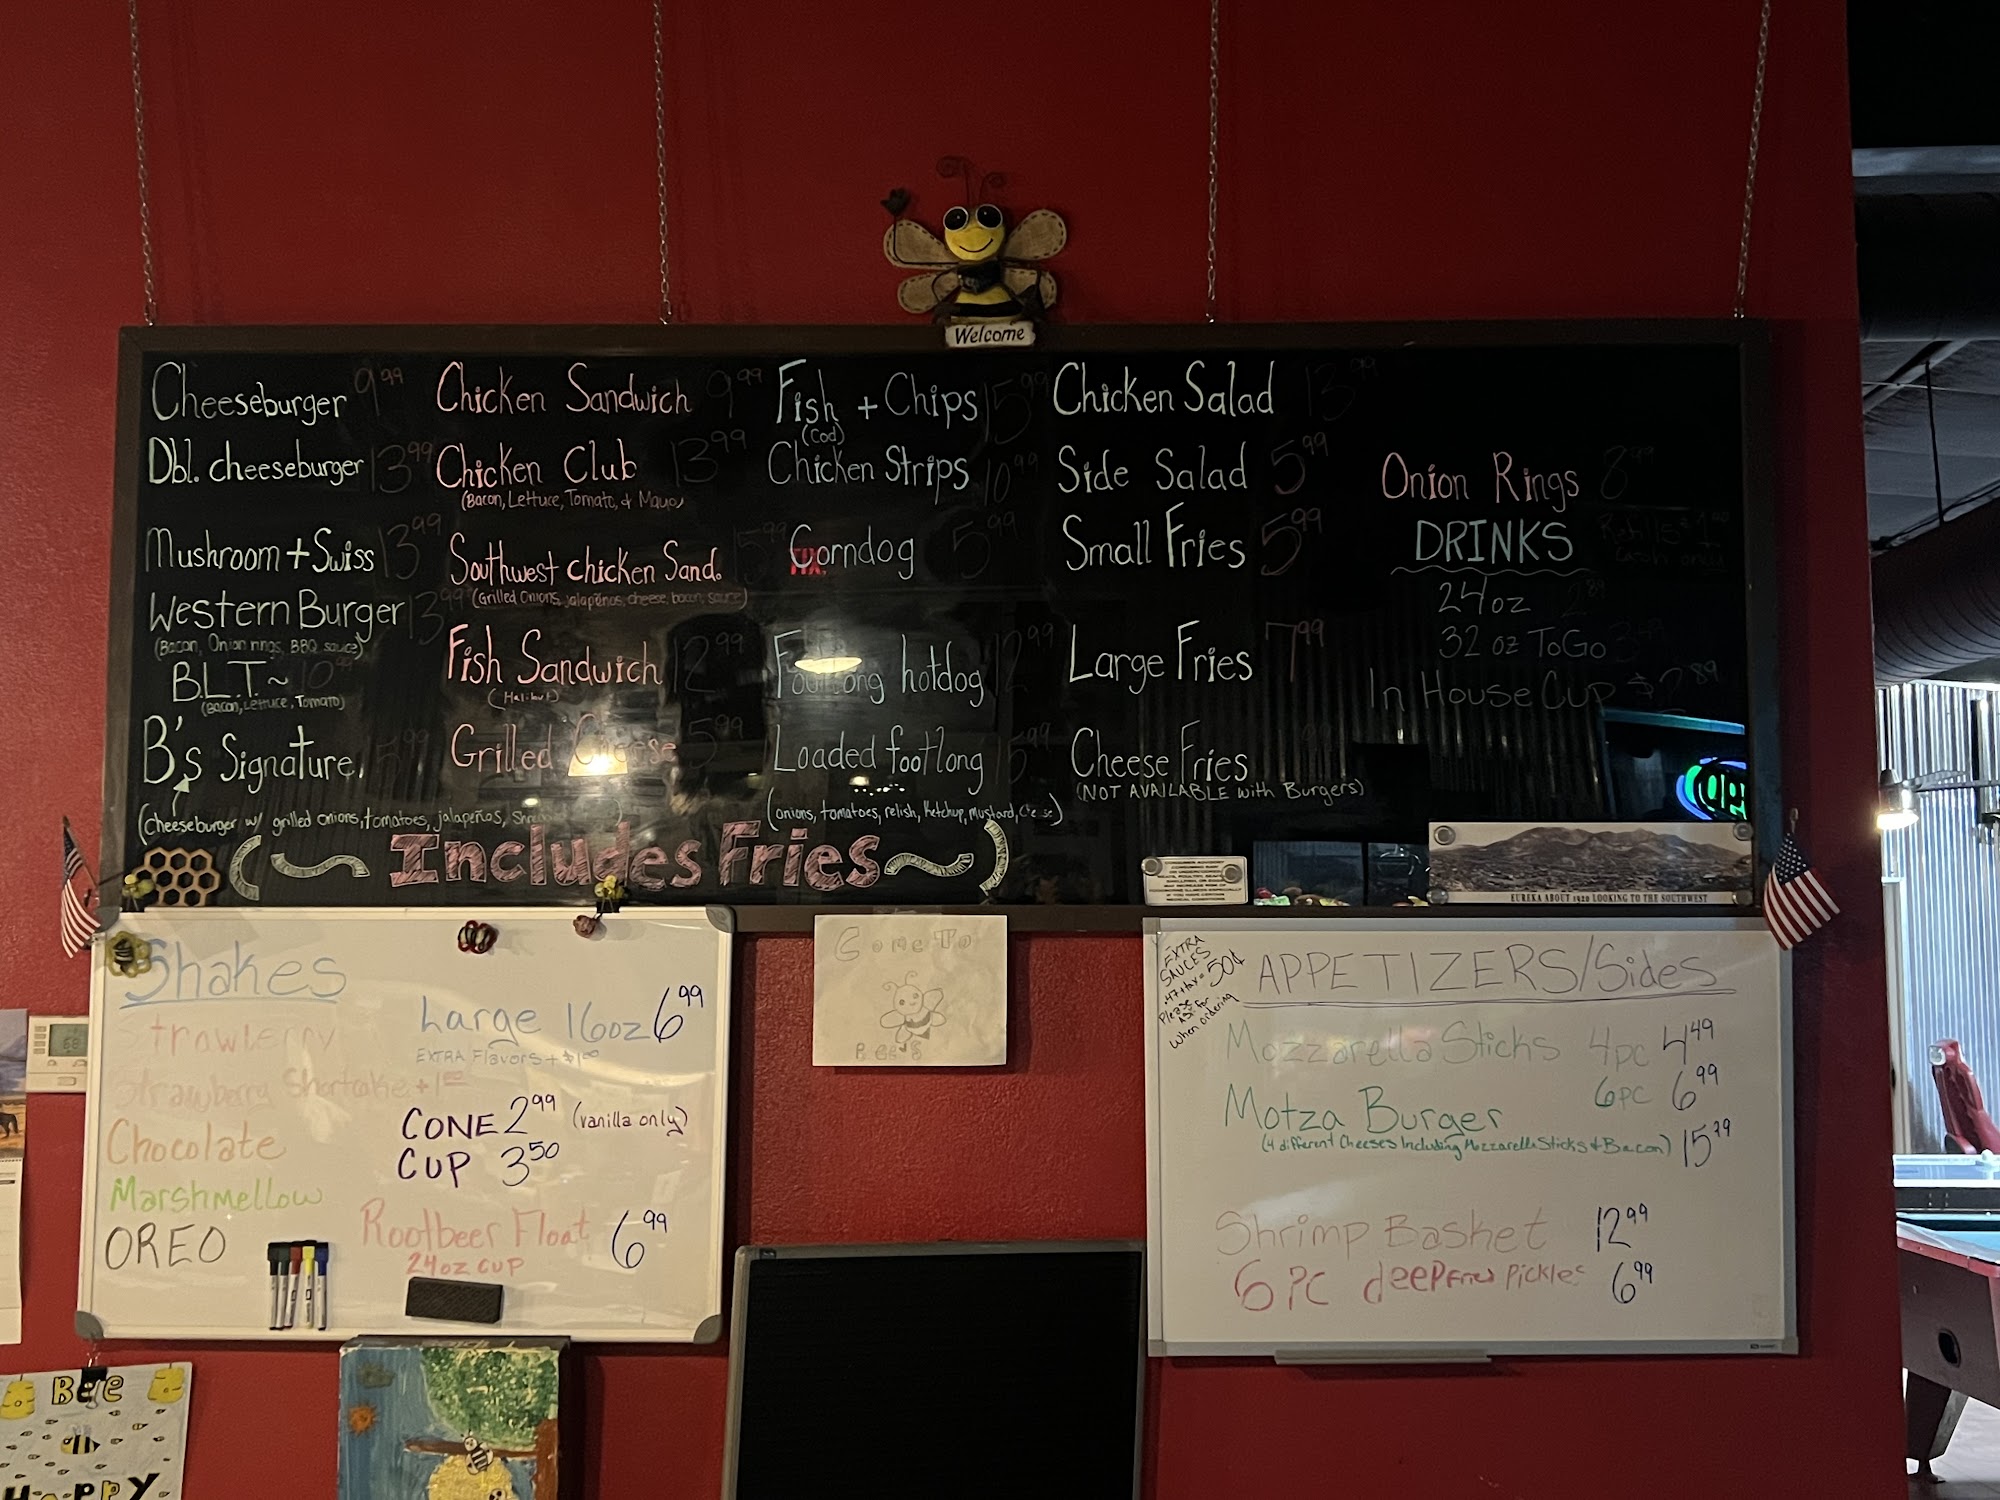 Welcome
Cheeseburger 9.99
Dbl. cheeseburger 13.99
Mushroom + Swiss 13.99
Western Burger 13.99
(Bacon, Onion rings, BBQ sauce)
B.L.T. ~ 10.99
(Bacon, Lettuce, Tomato)
B's Signature
(cheeseburger w/ grilled onions, tomatoes, jalapeños,
Chicken Sandwich 9.99
Chicken Club 13.99
(Bacon, Lettuce, Tomato, & Mayo)
Southwest chicken Sand. 15.99
(Grilled Onions, jalapeños, cheese, bacon, sauce)
Fish Sandwich 12.99
(Halibut)
Grilled Cheese 5.99
Fish + Chips 15.99
(Cod)
Chicken Strips 10.99
Corndog 5.99
Footlong hotdog 12.99
Loaded footlong 15.99
(onions, tomatoes, relish, ketchup, mustard, cheese)
Includes Fries
Chicken Salad 13.99
Side Salad 5.99
Small Fries 5.99
Large Fries 7.99
Cheese Fries
(NOT AVAILABLE with Burgers)
Onion Rings 8.99
DRINKS
Refills
cash only
24oz 2.89
32 oz ToGo 3.49
In House Cup $2.89
EUREKA ABOUT 1920 LOOKING TO THE SOUTHWEST
Shakes
Strawberry
Strawberry Shortcake + 1.00
Chocolate
Marshmellow
OREO
Large 16oz 6.99
EXTRA Flavors + $1.00
CONE 2.99 (vanilla only)
CUP 3.50
Rootbeer Float 6.99
24oz CUP
Come To
BEE'S
EXTRA
SAUCES
.47+tax = 50¢
Please
ask for
when ordering
APPETIZERS/Sides
Mozzarella Sticks 4pc 4.49
6pc 6.99
Motza Burger
(4 different Cheeses Including Mozzarella Sticks & Bacon) 15.29
Shrimp Basket 12.99
6 PC deep Fried Pickles 6.99
BEE
HAPPY